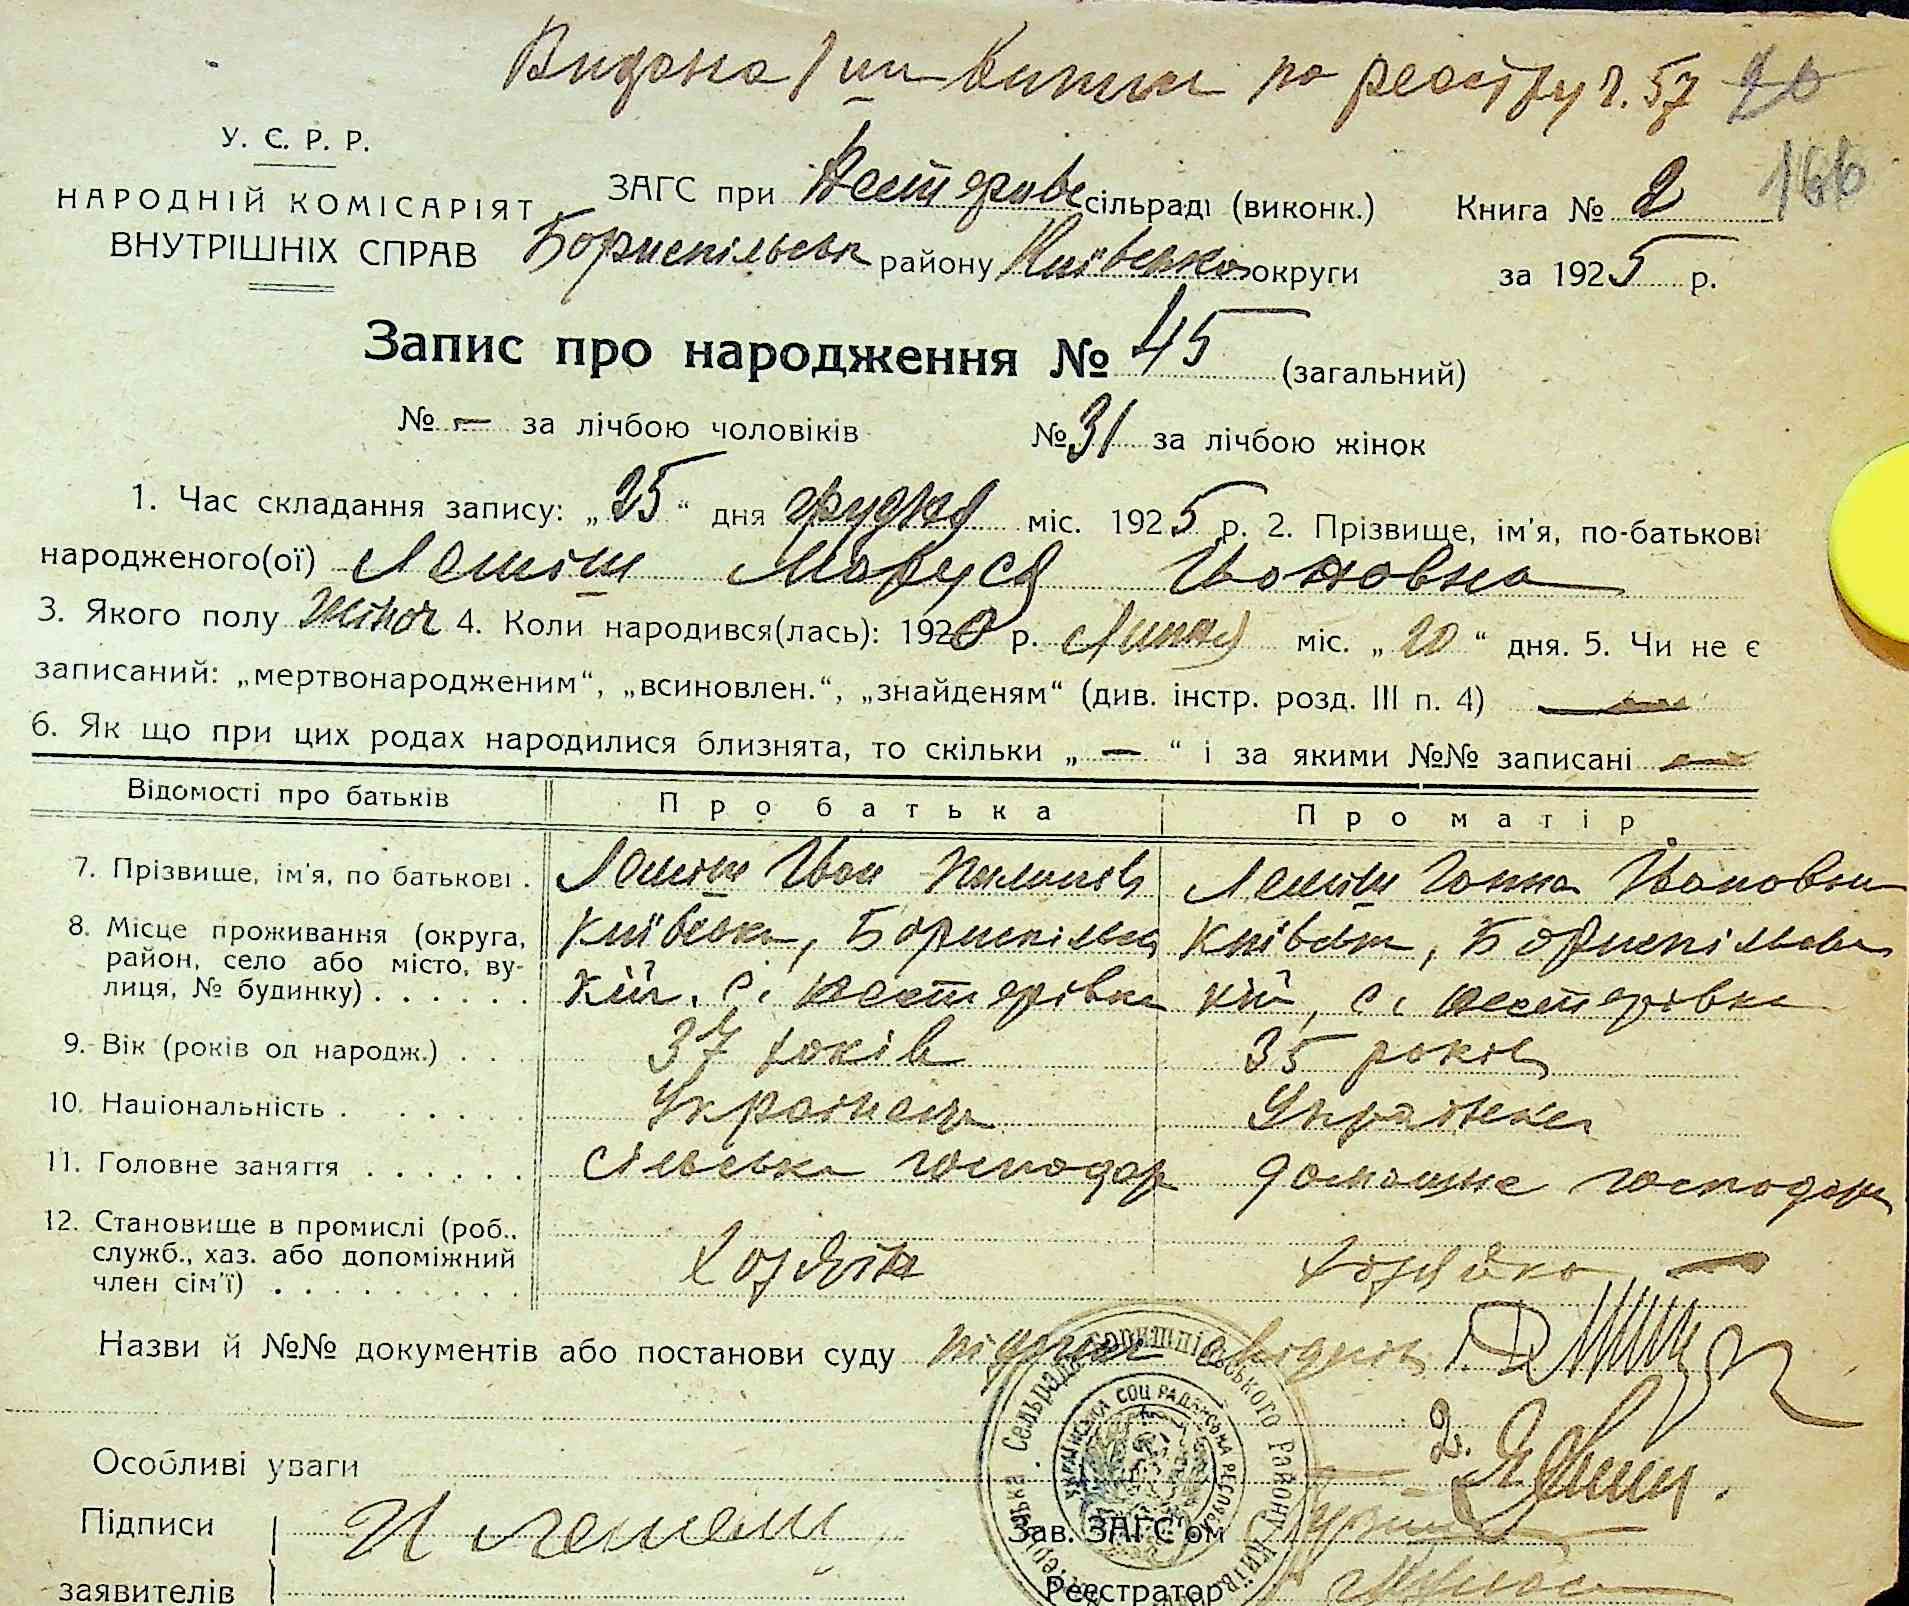 Видана І ш витяг по реєстру ч. 57 20
У. С. Р. Р.
166
НАРОДНІЙ КОМІСАРІЯТ
ВНУТРІШНІХ СПРАВ
ЗАГС при Нестерівс сільраді (виконк.) Книга № 2
Бориспільськ району Київсько округи за 1925 р.
Запис про народження № 45 (загальний)
№ — за лічбою чоловіків № 31 за лічбою жінок
1. Час складання запису: „25“ дня грудня міс. 1925 р. 2. Прізвище, ім'я, по-батькові
народженого(ої) Леміш Маруся Івановна
3. Якого полу Жіноч 4. Коли народився(лась): 1920 р. Липня міс. „20“ дня. 5. Чи не є
записаний: „мертвонародженим“, „всиновлен.“, „знайденям“ (див. інстр. розд. III п. 4) —
6. Як що при цих родах народилися близнята, то скільки „ — “ і за якими №№ записані —
Відомості про батьків Про батька Про матір
7. Прізвище, ім'я, по батькові . Леміш Іван Пилипов Леміш Ганна Івановна
8. Місце проживання (округа, Київська, Бориспільсь Київськ, Бориспільсь
район, село або місто, ву-
лиця, № будинку) . . . . . . кий. с. Нестерівка кий, с. Нестерівка
9. Вік (років од народж.) . . . 37 років 35 років
10. Національність . . . . . Українець Українка
11. Головне заняття . . . . . . Сільське господар домашнє господар
12. Становище в промислі (роб.,
служб., хаз. або допоміжний Хозяїн хозяйка —
член сім'ї) . . . . . . . . .
Назви й №№ документів або постанови суду 1.
2.
Особливі уваги
Підписи И Лемеш
Зав. ЗАГС'ом
заявителів
Реєстратор
Сельрада Бориспільського Району Київ
УКРАЇНСЬКА СОЦ РАДЯНСЬКА РЕСПУБ